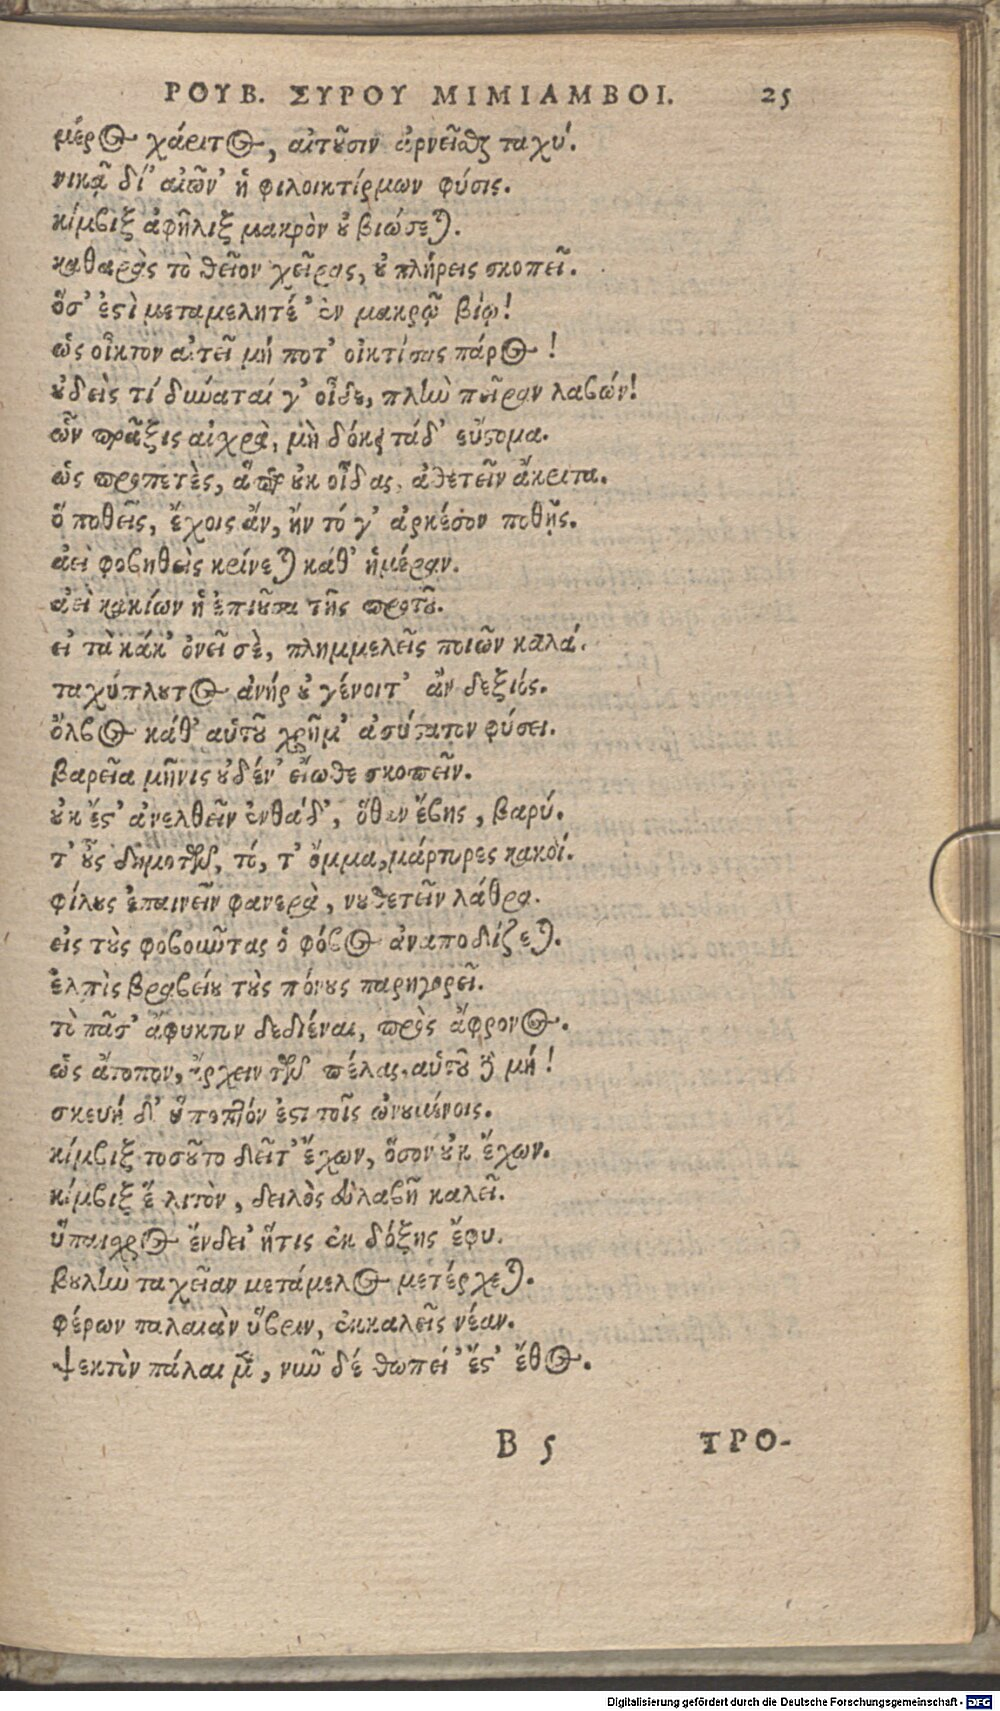 ΡΟΥΒ. ΣΥΡΟΥ ΜΙΜΙΑΜΒΟΙ. 25
μέρος χάριτος, αἰτοῦσιν ἀρνεῖσθαι ταχύ.
νικᾷ δι' αἰῶν' ἡ φιλοικτίρμων φύσις.
κίμβιξ ἀφῆλιξ μακρὸν οὐ βιώσεται.
καθαρὰς τὸ θεῖον χεῖρας, οὐ πλήρεις σκοπεῖ.
ὅσ' ἐστὶ μεταμελητέ' ἐν μακρῷ βίῳ!
ὡς οἶκτον αἰτεῖ μή ποτ' οἰκτίσας πάρος!
οὐδεὶς τί δύναταί γ' οἶδε, πλὴν πεῖραν λαβών!
ὧν πρᾶξις αἰχρὰ, μὴ δόκει τάδ' εὔστομα.
ὡς προπετὲς, ἅπερ οὐκ οἶδας, ἀθετεῖν ἄκριτα.
ὃ ποθεῖς, ἔχοις ἂν, ἢν τό γ' ἀρκέσον ποθῇς.
ἀεὶ φοβηθεὶς κρίνεται κάθ' ἡμέραν.
ἀεὶ κακίων ἡ ἐπιοῦσα τῆς προτοῦ.
εἰ τὰ κάκ' ὀνεῖ σὲ, πλημμελεῖς ποιῶν καλά.
ταχύπλουτος ἀνήρ οὐ γένοιτ' ἂν δεξιός.
ὄλβος κάθ' αὑτοῦ χρῆμ' ἀσύστατον φύσει.
βαρεῖα μῆνις οὐδέν' εἴωθε σκοπεῖν.
οὐκ ἔστ' ἀνελθεῖν ἐνθάδ', ὅθεν ἔβης, βαρύ.
τ' οὖς δημοτῶν, τό, τ' ὄμμα, μάρτυρες κακοί.
φίλους ἐπαινεῖν φανερὰ, νουθετεῖν λάθρα.
εἰς τοὺς φοβοῦντας ὁ φόβος ἀναποδίζεται.
ἐλπὶς βραβείου τοὺς πόνους παρηγορεῖ.
τὸ πᾶσ' ἄφυκτον δεδιέναι, πρὸς ἄφρονος.
ὡς ἄτοπον, ἄρχειν τῶν πέλας, αὑτοῦ δὲ μή!
σκευή δ' ὕποπτόν ἐστι τοῖς ὠνουμένοις.
κίμβιξ τοσοῦτο δεῖτ' ἔχων, ὅσον οὐκ ἔχων.
κίμβιξ ἓ λιτὸν, δειλὸς εὐλαβῆ καλεῖ.
ὕπαιθρος ἔνδει' ἥτις ἐκ δόξης ἔφυ.
βουλὴν ταχεῖαν μετάμελος μετέρχεται.
φέρων παλαιὰν ὕβριν, ἐκκαλεῖς νέαν.
ψεκτὸν πάλαι μὲν, νῦν δέ θωπεί' ἔστ' ἔθος.
Β 5 ΤΡΟ-
Digitalisierung gefördert durch die Deutsche Forschungsgemeinschaft - DFG